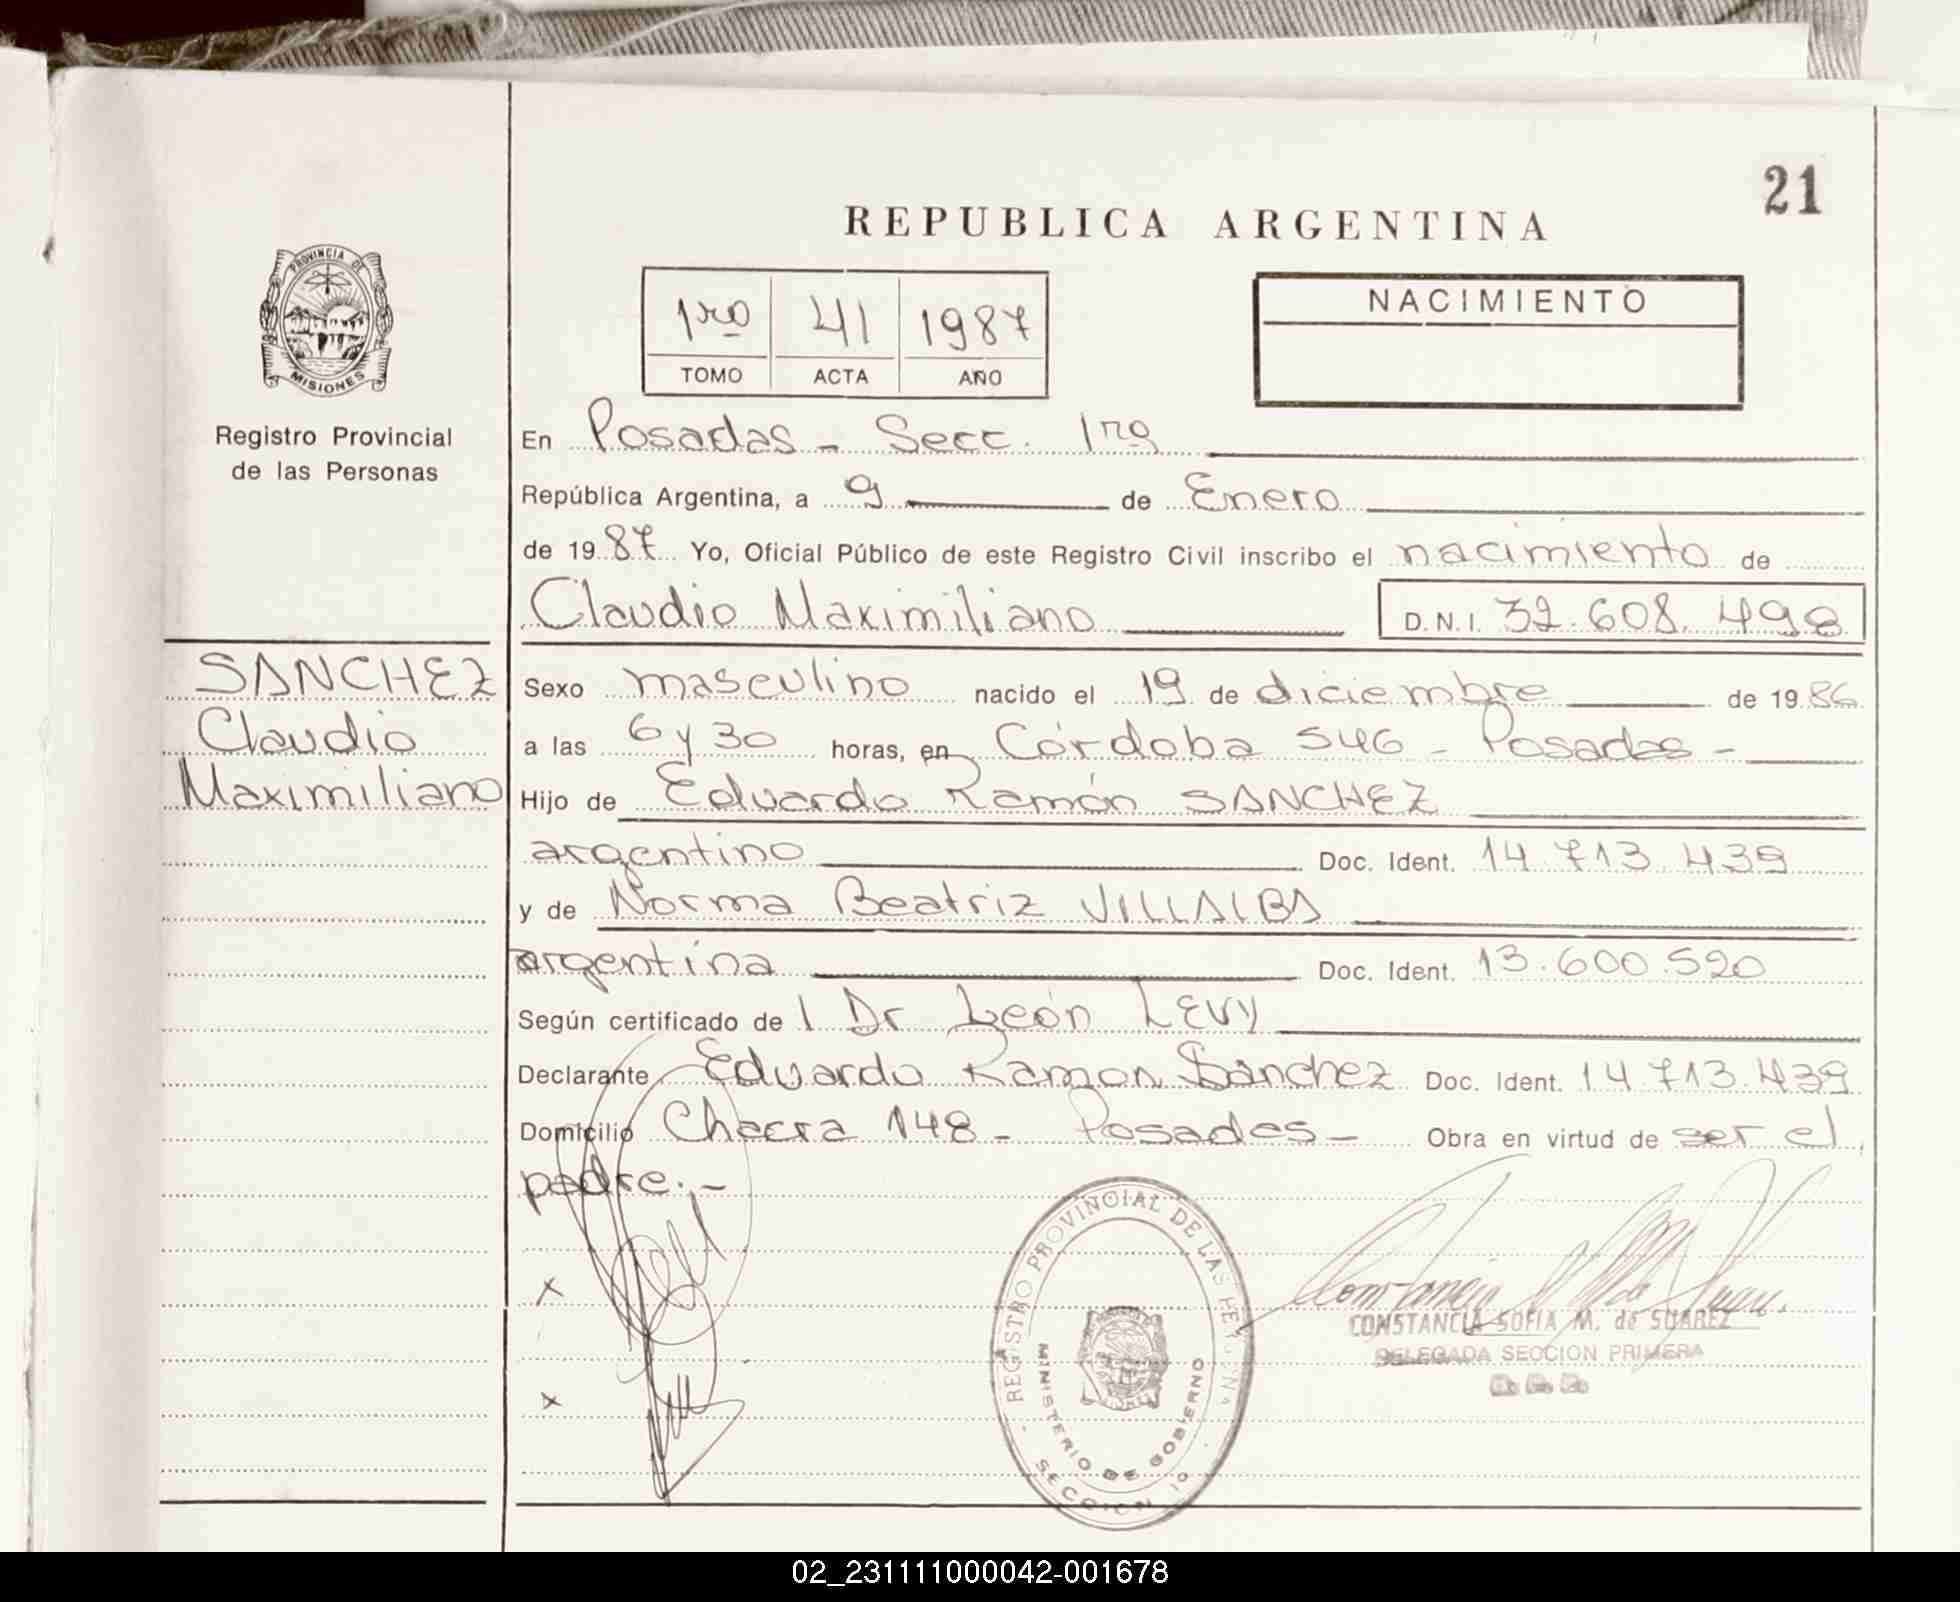 21
REPUBLICA ARGENTINA
PROVINCIA DE
MISIONES
Registro Provincial
de las Personas
1ro 41 1987
TOMO ACTA AÑO
NACIMIENTO
En Posadas - Secc. 1ra
República Argentina, a 9 de Enero
de 1987 Yo, Oficial Público de este Registro Civil inscribo el nacimiento de
Claudio Maximiliano D.N.I. 32.608.498
SANCHEZ
Claudio
Maximiliano
Sexo masculino nacido el 19 de diciembre de 1986
a las 6 y 30 horas, en Córdoba 546 - Posadas -
Hijo de Eduardo Ramón SANCHEZ
argentino Doc. Ident. 14.713.439
y de Norma Beatriz VILLALBA
argentina Doc. Ident. 13.600.520
Según certificado de l Dr León LEVY
Declarante Eduardo Ramon Sánchez Doc. Ident. 14.713.439
Domicilio Chacra 148 - Posadas - Obra en virtud de ser el
padre.-
x
x
REGISTRO PROVINCIAL DE LAS PERSONAS
MINISTERIO DE GOBIERNO
SECCION 1a
CONSTANCIA SOFIA M. de SUAREZ
DELEGADA SECCION PRIMERA
02_231111000042-001678